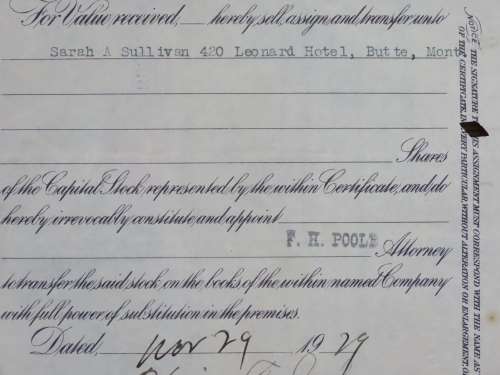 For Value received, hereby sell, assign and transfer unto
Sarah A Sullivan 420 Leonard Hotel, Butte, Mont
Shares
of the Capital Stock represented by the within Certificate, and do
hereby irrevocably constitute and appoint
F. H. POOLE Attorney
to transfer the said stock on the books of the within named Company
with full power of substitution in the premises.
Dated, Nov 29 1929
NOTICE THE SIGNATURE THIS ASSIGNMENT MUST CORRESPOND WITH THE NAME AS
OF THE CERTIFICATE, IN EVERY PARTICULAR WITHOUT ALTERATION OR ENLARGEMENT, OR